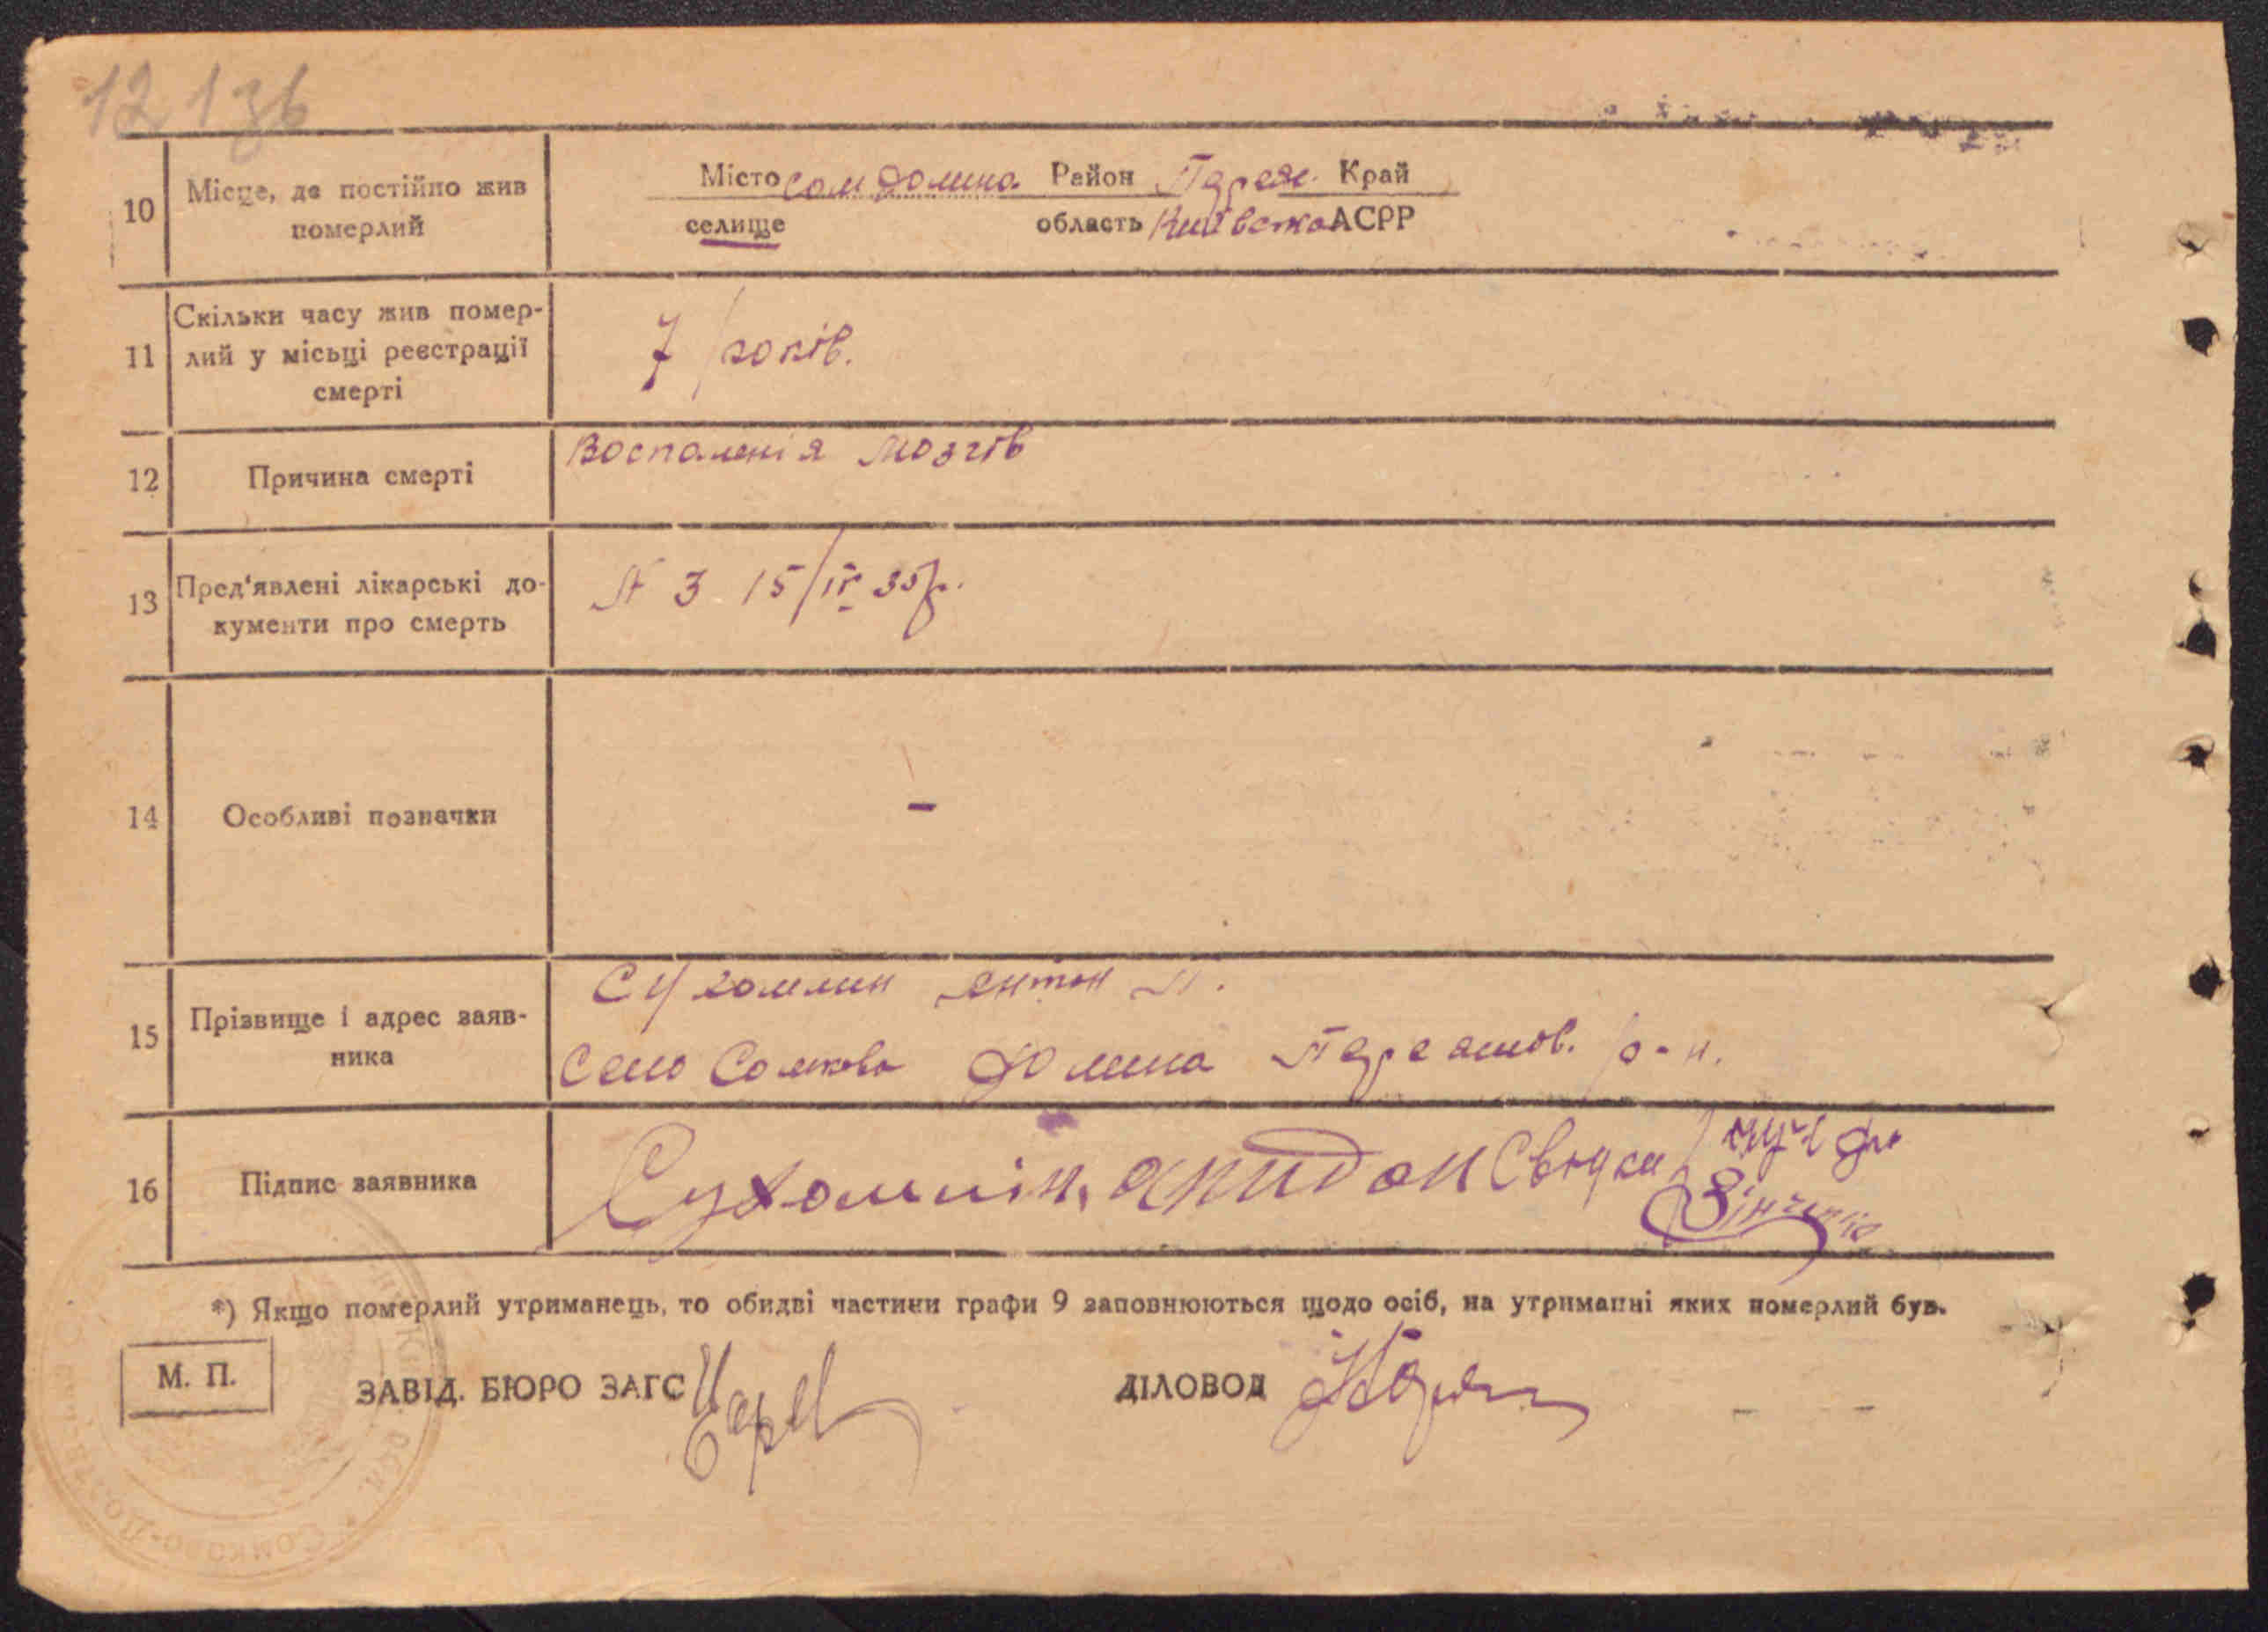 12 136
10 Місце, де постійно жив померлий
Місто Сом Долина Район Переяс. Край
селище область Київська АСРР
11 Скільки часу жив помер-
лий у місьці реєстрації
смерті
7 років.
12 Причина смерті
Воспаленія мозгів
13 Пред'явлені лікарські до-
кументи про смерть
N 3 15/IV 35 р.
14 Особливі позначки
-
15 Прізвище і адрес заяв-
ника
Сухомлин Антон П.
Село Сомкова Долина Переяслов. р-н.
16 Підпис заявника
Сухомлін Свідки
Зінченко
*) Якщо померлий утриманець, то обидві частини графи 9 заповнюються щодо осіб, на утриманні яких померлий був.
М. П.
ЗАВІД. БЮРО ЗАГС
ДІЛОВОД